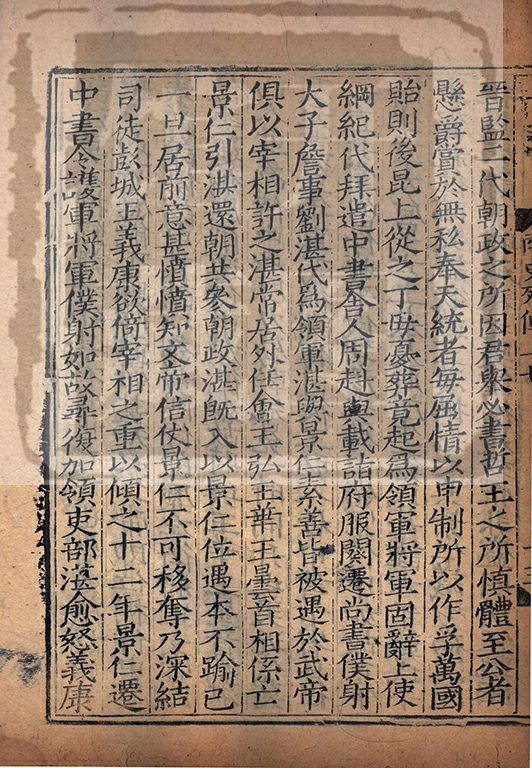 晉監二代朝政之所因君舉必書哲王之所慎體至公者
懸爵賞於無私奉天統者每屈情以申制所以作孚萬國
貽則後昆上從之丁毋憂葬竟起爲領軍將軍固辭上使
綱紀代拜遣中書舍人周赳輿載詣府服闋遷尚書僕射
大子詹事劉湛代爲領軍湛與景仁素善皆被遇於武帝
俱以宰相許之湛常居外任會王弘王華王曇首相係亡
景仁引湛還朝共參朝政湛旣入以景仁位遇本不踰已
一旦居前意甚憤憤知文帝信仗景仁不可移奪乃深結
司徒彭城王義康欲倚宰相之重以傾之十二年景仁遷
中書令護軍將軍僕射如故尋復加領吏部湛愈怒義康